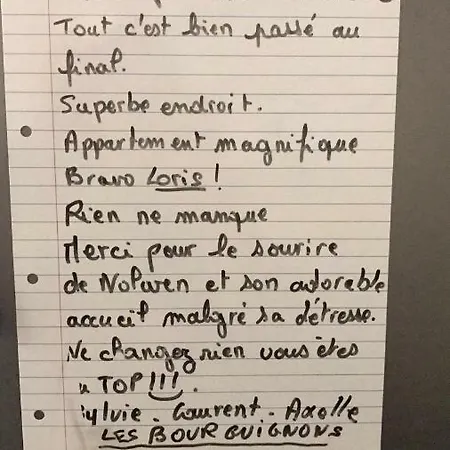 Tout c'est bien passé au
final.
Superbe endroit.
Appartement magnifique
Bravo Loris !
Rien ne manque
Merci pour le sourire
de Nolwen et son adorable
accueil malgré sa détresse.
Ne changez rien vous êtes
TOP !!! .
ylvie - Laurent - Axelle
LES BOURGUIGNONS